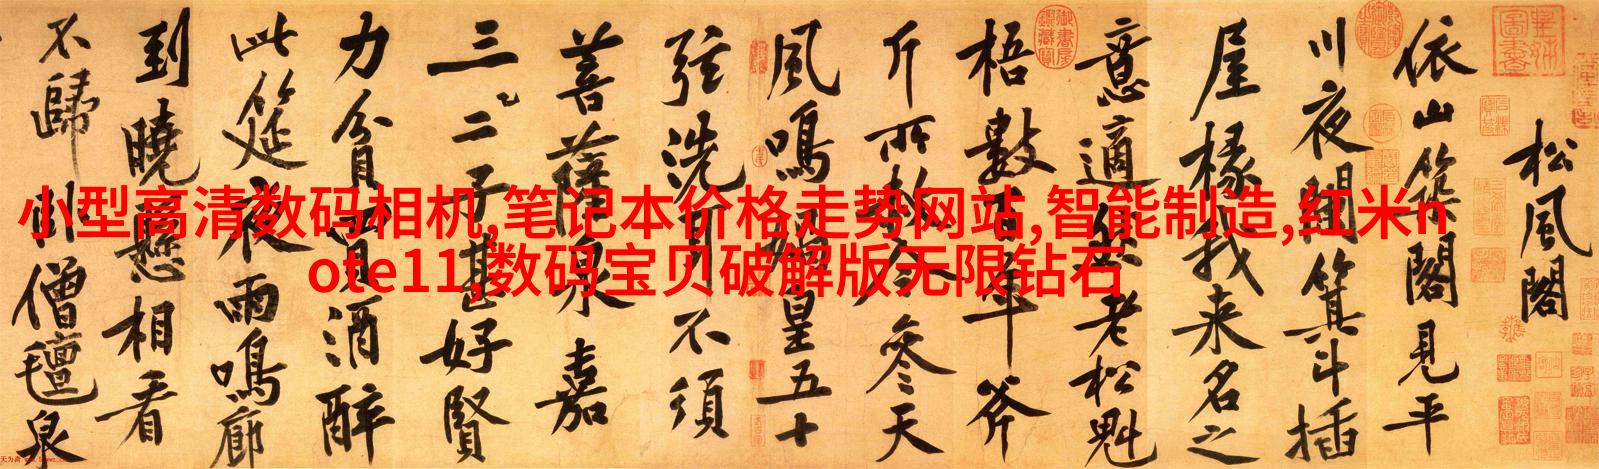 小型高清数码相机,笔记本价格走势网站,智能制造,红米n
ote11,数码宝贝破解版无限钻石
松風閣
依山築閣見平
川夜闌箕斗插
屋椽我来名之
意適然老松魁
梧數百年斧
斤所赦今参天
風鳴媧皇五十
弦洗耳不須
菩薩泉嘉
三二子甚好賢
力貧買酒醉
此筵夜雨鳴廊
到曉懸相看
不歸卧僧氈泉